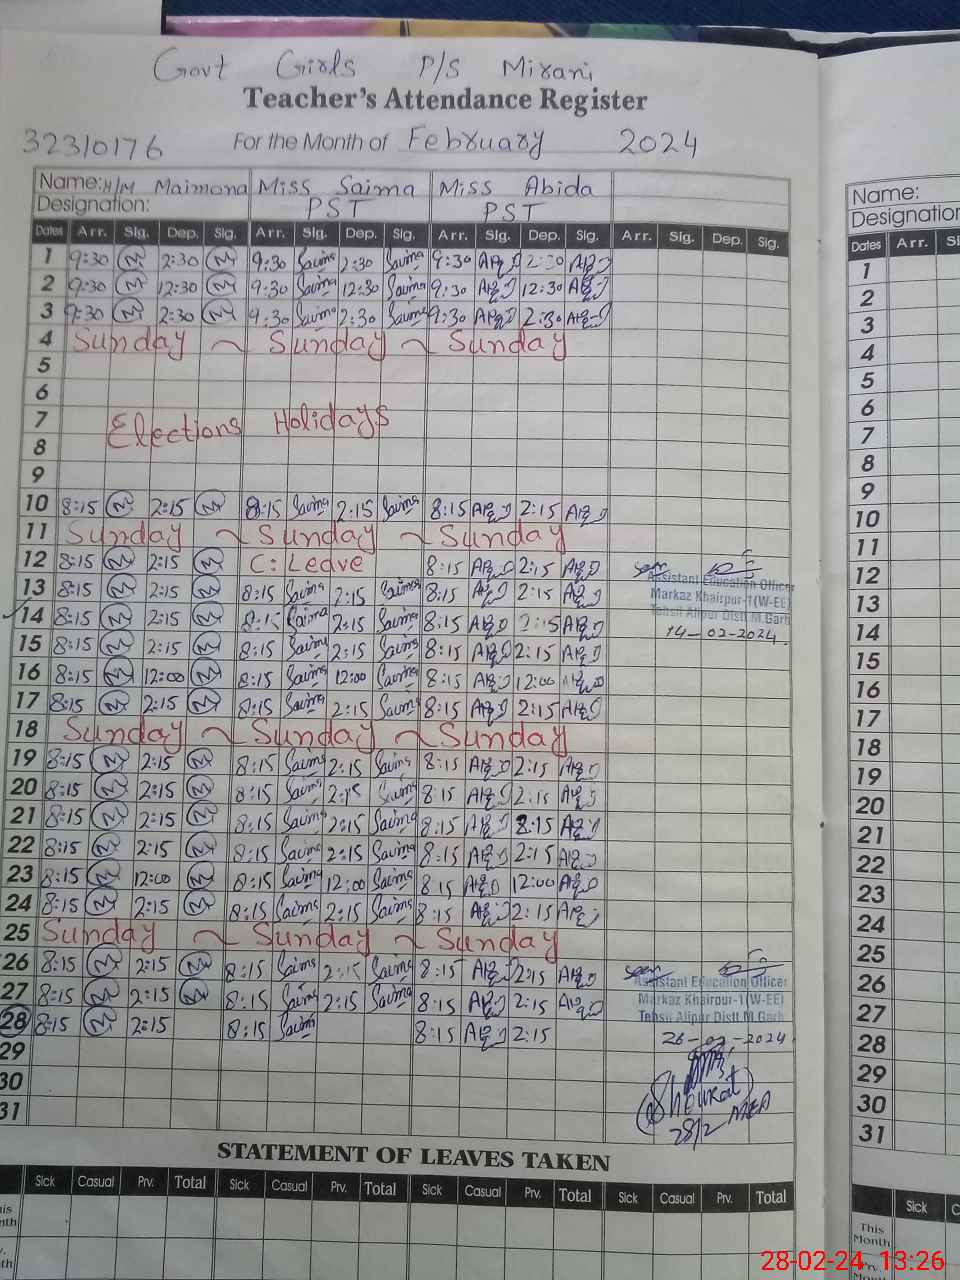 Govt Girls P/S Mirani
Teacher's Attendance Register
32310176 For the Month of February 2024
Name: H/M Maimona Miss Saima Miss Abida
Designation: PST PST
Dates Arr. Sig. Dep. Sig. Arr. Sig. Dep. Sig. Arr. Sig. Dep. Sig. Arr. Sig. Dep. Sig.
1 9:30 2:30 9:30 Saima 2:30 Saima 9:30 2:30
2 9:30 12:30 9:30 Saima 12:30 Saima 9:30 12:30
3 9:30 2:30 9:30 Saima 2:30 Saima 9:30 2:30
4 Sunday ~ Sunday ~ Sunday
5
6
7 Elections Holidays
8
9
10 8:15 2:15 8:15 Saima 2:15 Saima 8:15 2:15
11 Sunday ~ Sunday ~ Sunday
12 8:15 2:15 C: Leave 8:15 2:15 Seen
Assistant Education Officer
13 8:15 2:15 8:15 Saima 2:15 Saima 8:15 2:15
Markaz Khairpur-1(W-EE)
Tehsil Alipur Distt.M.Garh
14 8:15 2:15 8:15 Saima 2:15 Saima 8:15 2:15
14-02-2024.
15 8:15 2:15 8:15 Saima 2:15 Saima 8:15 2:15
16 8:15 12:00 8:15 Saima 12:00 Saima 8:15 12:00
17 8:15 2:15 8:15 Saima 2:15 Saima 8:15 2:15
18 Sunday ~ Sunday ~ Sunday
19 8:15 2:15 8:15 Saima 2:15 Saima 8:15 2:15
20 8:15 2:15 8:15 Saima 2:15 Saima 8:15 2:15
21 8:15 2:15 8:15 Saima 2:15 Saima 8:15 2:15
22 8:15 2:15 8:15 Saima 2:15 Saima 8:15 2:15
23 8:15 12:00 8:15 Saima 12:00 Saima 8:15 12:00
24 8:15 2:15 8:15 Saima 2:15 Saima 8:15 2:15
25 Sunday ~ Sunday ~ Sunday
26 8:15 2:15 8:15 Saima 2:15 Saima 8:15 2:15 Seen
Assistant Education Officer
27 8:15 2:15 8:15 Saima 2:15 Saima 8:15 2:15
Markaz Khairpur-1(W-EE)
Tehsil Alipur Distt.M.Garh
28 8:15 2:15 8:15 Saima 8:15 2:15
26-02-2024
29
30
Shoukat
31
28/2 MEA
STATEMENT OF LEAVES TAKEN
Sick Casual Prv. Total Sick Casual Prv. Total Sick Casual Prv. Total Sick Casual Prv. Total
Name:
Designation
Dates Arr. Si
1
2
3
4
5
6
7
8
9
10
11
12
13
14
15
16
17
18
19
20
21
22
23
24
25
26
27
28
29
30
31
Sick C
This
Month
Prv.
28-02-24 13:26